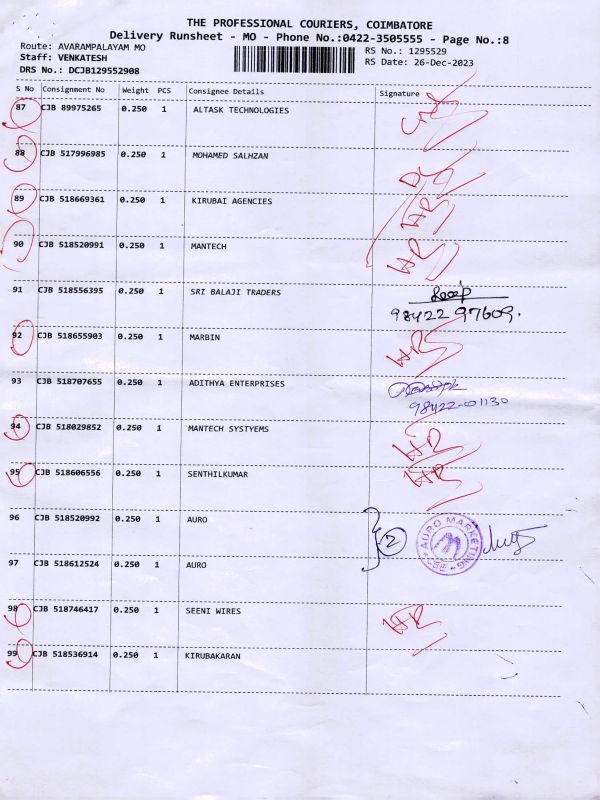 THE PROFESSIONAL COURIERS, COIMBATORE
Delivery Runsheet - MO - Phone No.:0422-3505555 - Page No.:8
Route: AVARAMPALAYAM MO
RS No.: 1295529
Staff: VENKATESH
RS Date: 26-Dec-2023
DRS No.: DCJB129552908
S No Consignment No Weight PCS Consignee Details Signature
87 CJB 89975265 0.250 1 ALTASK TECHNOLOGIES
88 CJB 517996985 0.250 1 MOHAMED SALHZAN
89 CJB 518669361 0.250 1 KIRUBAI AGENCIES
90 CJB 518520991 0.250 1 MANTECH
91 CJB 518556395 0.250 1 SRI BALAJI TRADERS
98422 97609.
92 CJB 518655903 0.250 1 MARBIN
93 CJB 518707655 0.250 1 ADITHYA ENTERPRISES
98422-01130
94 CJB 518029852 0.250 1 MANTECH SYSTYEMS
95 CJB 518606556 0.250 1 SENTHILKUMAR
96 CJB 518520992 0.250 1 AURO
2
AURO MARKETING
CBE
97 CJB 518612524 0.250 1 AURO
98 CJB 518746417 0.250 1 SEENI WIRES
99 CJB 518536914 0.250 1 KIRUBAKARAN